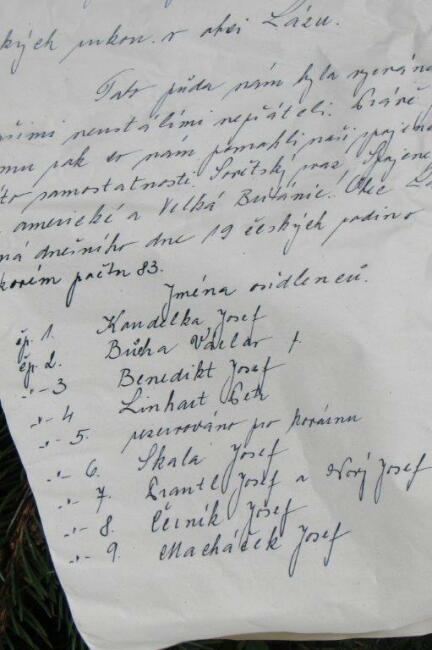 kých unkon. v obci Lázu.
Tato půda nám byla vyrvána
šimi neustálími nepřáteli. Právě
mu pak se nám pomohli naši spojenc
to samostatnosti. Sovětský svaz, Spojené
americké a Velká Británie! Obec Lá
má dnešního dne 19 českých rodin o
kovém počtu 83.
Jména osídlenců.
čp. 1. Koudelka Josef
čp. 2. Bůcha Václav †
-"- 3 Benedikt Josef
-"- 4 Linhart Petr
-"- 5. reservováno pro kovárnu
-"- 6. Skala Josef
-"- 7. Prantl Josef a Nový Josef
-"- 8. Černík Josef
-"- 9. Macháček Josef